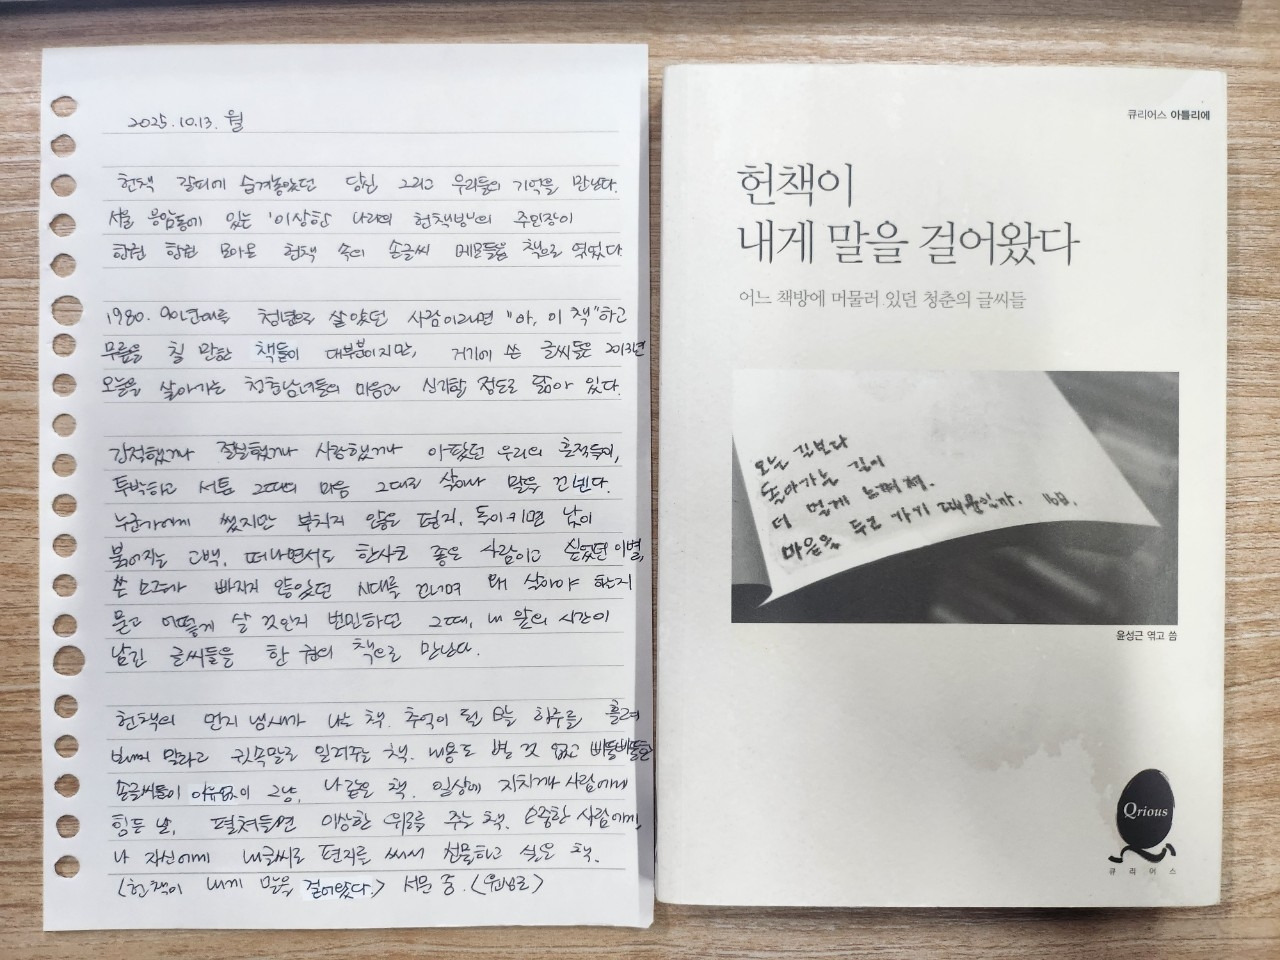 2025.10.13. 월
헌책 갈피에 숨겨놓았던 당신 그리고 우리들의 기억을 만난다.
서울 응암동에 있는 '이상한 나라의 헌책방'의 주인장이
한권 한권 모아온 헌책 속의 손글씨 메모들을 책으로 엮었다
1980. 90년대를 청년으로 살았던 사람이라면 "아, 이 책"하고
무릎을 칠 만한 책들이 대부분이지만, 거기에 쓴 글씨들은 2013년
오늘을 살아가는 청춘남녀들의 마음과 신기할 정도로 닮아 있다.
간직했거나 절실했거나 사랑했거나 아팠던 우리의 흔적들이,
투박하고 서툰 그때의 마음 그대로 살아나 말을 건넨다.
누군가에게 썼지만 부치지 않은 편지, 들이키면 낯이
붉어지는 고백, 떠나면서도 한사코 좋은 사람이고 싶었던 이별,
쓴 모주가 빠지지 않았던 시대를 건너며 왜 살아야 하는지
묻고 어떻게 살 것인지 번민하던 그때, 내 앞의 시간이
남긴 글씨들을 한 권의 책으로 만난다.
헌책의 먼지 냄새가 나는 책. 추억이 될 오늘 하루를 흘려
보내지 말라고 귓속말로 일러주는 책. 내용도 별 것 없고 삐뚤빼뚤한
손글씨들이 이유없이 그냥, 나 같은 책. 일상에 지치거나 사람에게
힘든 날, 펼쳐들면 이상한 위로를 주는 책. 소중한 사람에게,
나 자신에게 내글씨로 편지를 써서 선물하고 싶은 책.
<헌책이 내게 말을 걸어왔다.> 서문 중.
큐리어스 아틀리에
헌책이
내게 말을 걸어왔다
어느 책방에 머물러 있던 청춘의 글씨들
오는 길보다
돌아가는 길이
더 멀게 느껴져.
마음을 두고 가기 때문일까.
윤성근 엮고 씀
Qrious
큐리어스